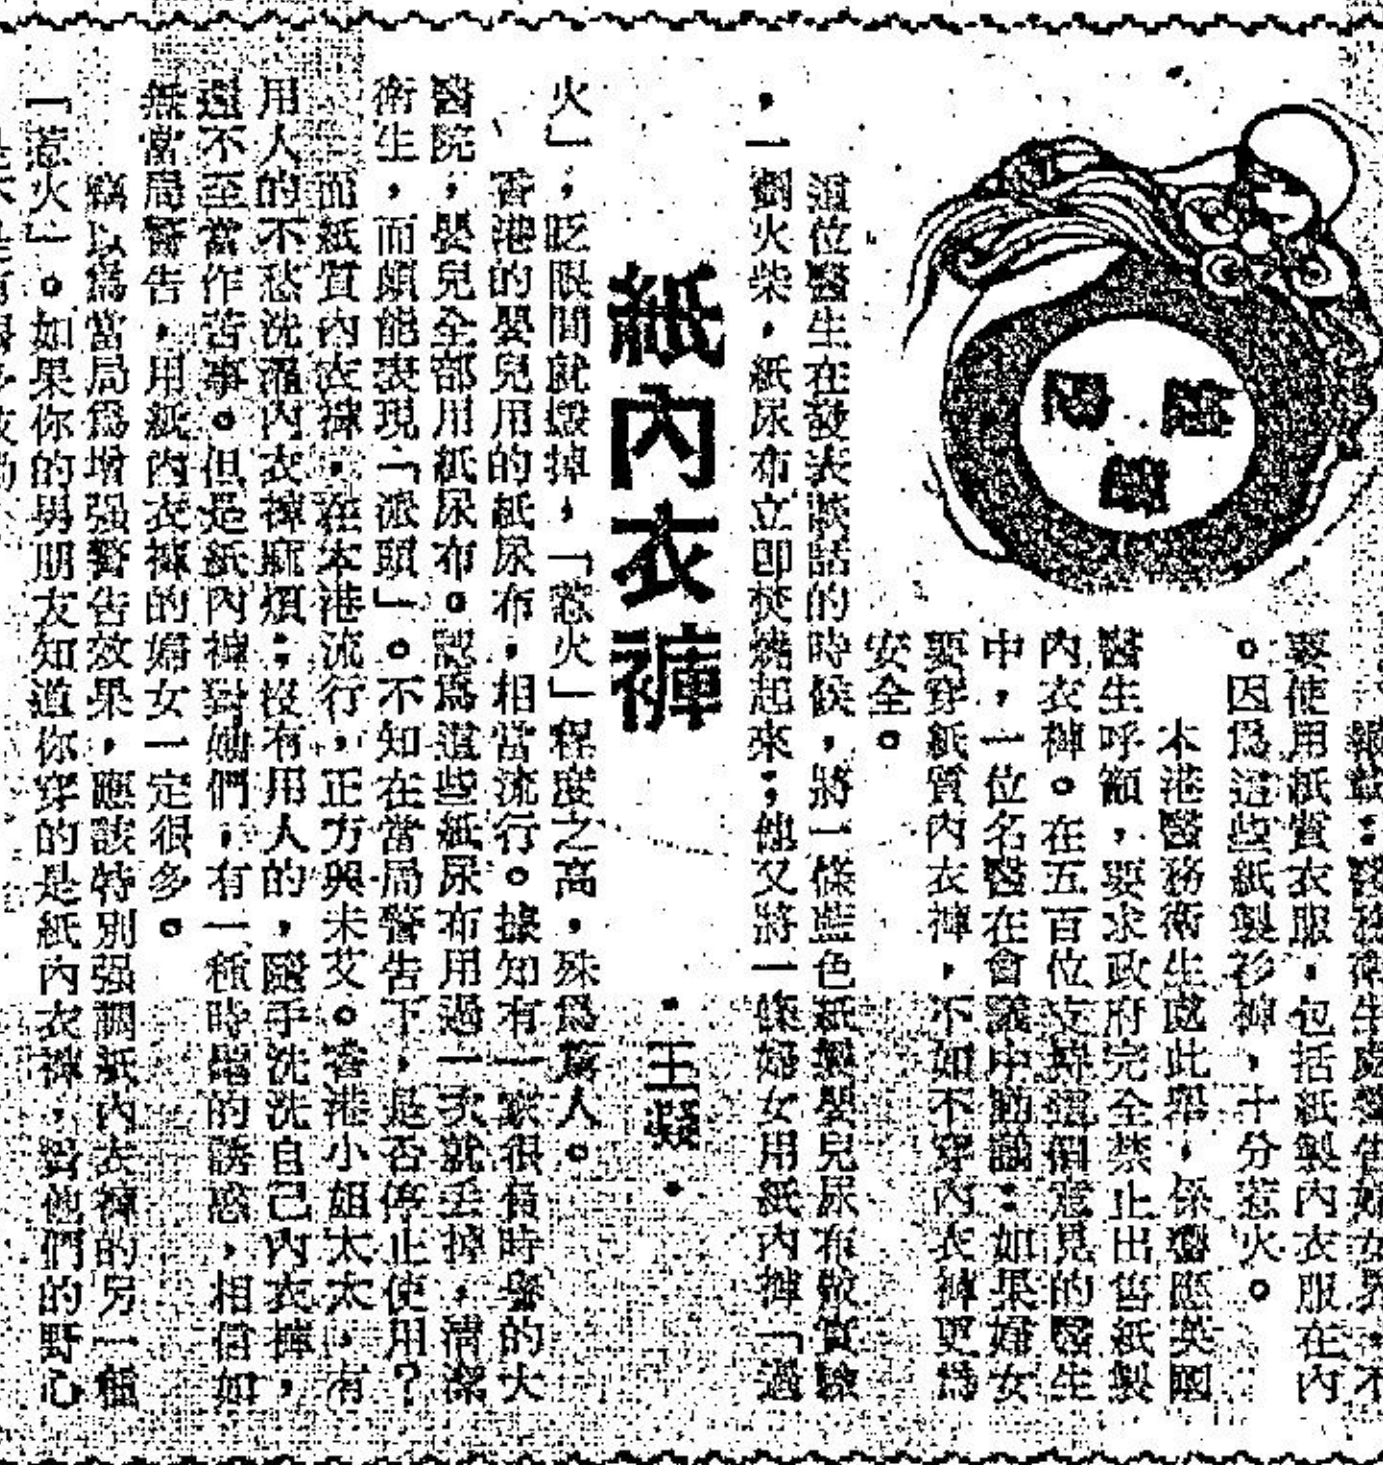 隨
想
錄
報載：醫務衛生處警告婦女界，不
要使用紙質衣服，包括紙製內衣服在內
。因爲這些紙製衫褲，十分惹火。
本港醫務衛生處此舉，係響應英國
醫生呼籲，要求政府完全禁止出售紙製
內衣褲。在五百位支持這個意見的醫生
中，一位名醫在會議中動議：如果婦女
要穿紙質內衣褲，不如不穿內衣褲更爲
安全。
這位醫生在發表談話的時候，將一條藍色紙製嬰兒尿布做實驗
，一劃火柴，紙尿布立即焚燒起來；他又將一條婦女用紙內褲「過
紙內衣褲
·王凝·
火」，眨眼間就燬掉，「惹火」程度之高，殊爲駭人。
香港的嬰兒用的紙尿布，相當流行。據知有一家很負時譽的大
醫院，嬰兒全部用紙尿布。認爲這些紙尿布用過一次就丟掉，清潔
衛生，而頗能表現「派頭」。不知在當局警告下，是否停止使用？
而紙質內衣褲，在本港流行，正方興未艾。香港小姐太太，有
用人的不愁洗濯內衣褲麻煩；沒有用人的，隨手洗洗自己內衣褲，
還不至當作苦事。但是紙內褲對她們，有一種時髦的誘惑，相信如
無當局警告，用紙內衣褲的婦女一定很多。
竊以爲當局爲增强警告效果，應該特別强調紙內衣褲的另一種
「惹火」。如果你的男朋友知道你穿的是紙內衣褲，對他們的野心